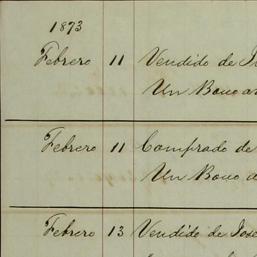 1873
Febrero 11 Vendido de
Un Bono
Febrero 11 Comprado de
Un Bono
Febrero 13 Vendido de José